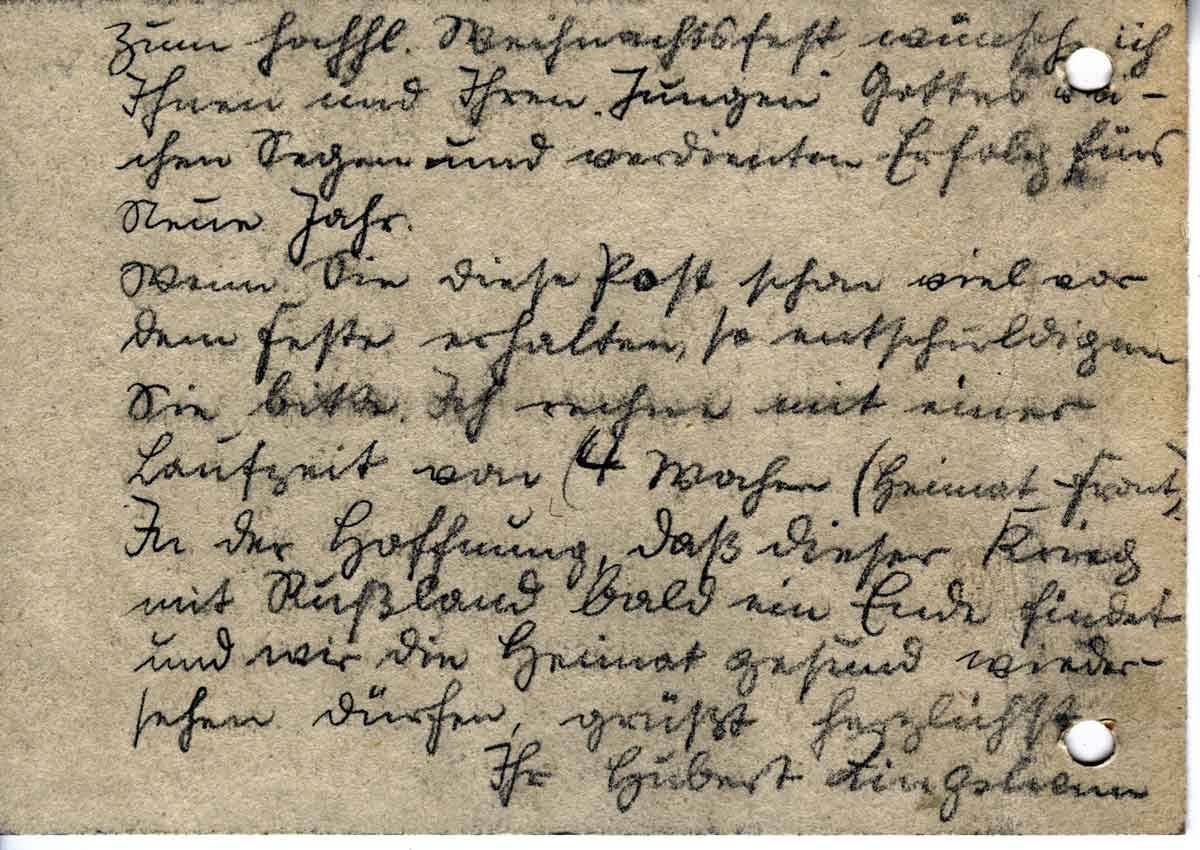 Zum hochhl. Weihnachtsfest wünsche ich
Ihnen und Ihren Jungen Gottes rei-
chen Segen und verdienten Erfolg fürs
Neue Jahr.
Wenn Sie diese Post schon viel vor
dem Feste erhalten, so entschuldigen
Sie bitte. Ich rechne mit einer
Laufzeit von (4 Wochen (Heimat-Front).
In der Hoffnung, daß dieser Krieg
mit Rußland bald ein Ende findet
und wir die Heimat gesund wieder-
sehen dürfen, grüßt herzlichst
Ihr Hubert